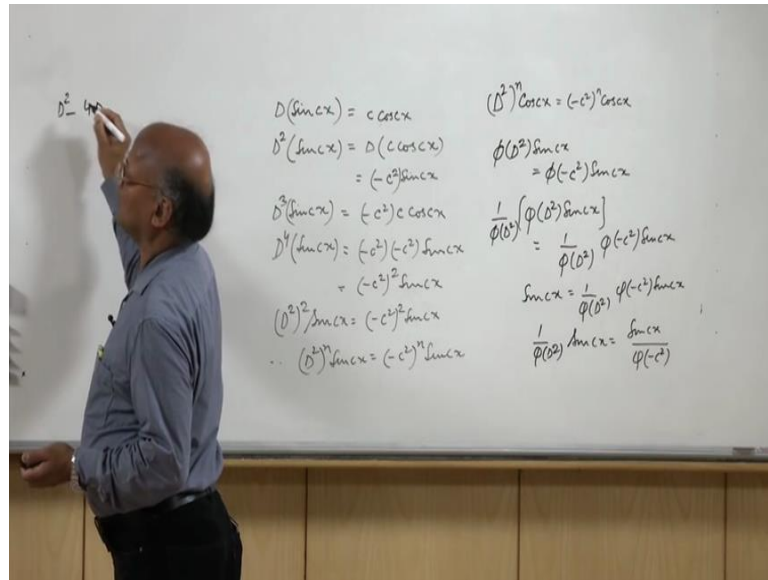 D² - 4
D(Sin cx) = c cos cx
D²(Sin cx) = D(c cos cx)
= (-c²) Sin cx
D³(Sin cx) = (-c²) c cos cx
D⁴(Sin cx) = (-c²)(-c²) Sin cx
= (-c²)² Sin cx
(D²)² Sin cx = (-c²)² Sin cx
∴ (D²)ⁿ Sin cx = (-c²)ⁿ Sin cx
(D²)ⁿ Cos cx = (-c²)ⁿ Cos cx
φ(D²) Sin cx
= φ(-c²) Sin cx
1/φ(D²) [φ(D²) Sin cx]
= 1/φ(D²) φ(-c²) Sin cx
Sin cx = 1/φ(D²) φ(-c²) Sin cx
1/φ(D²) Sin cx = Sin cx/φ(-c²)